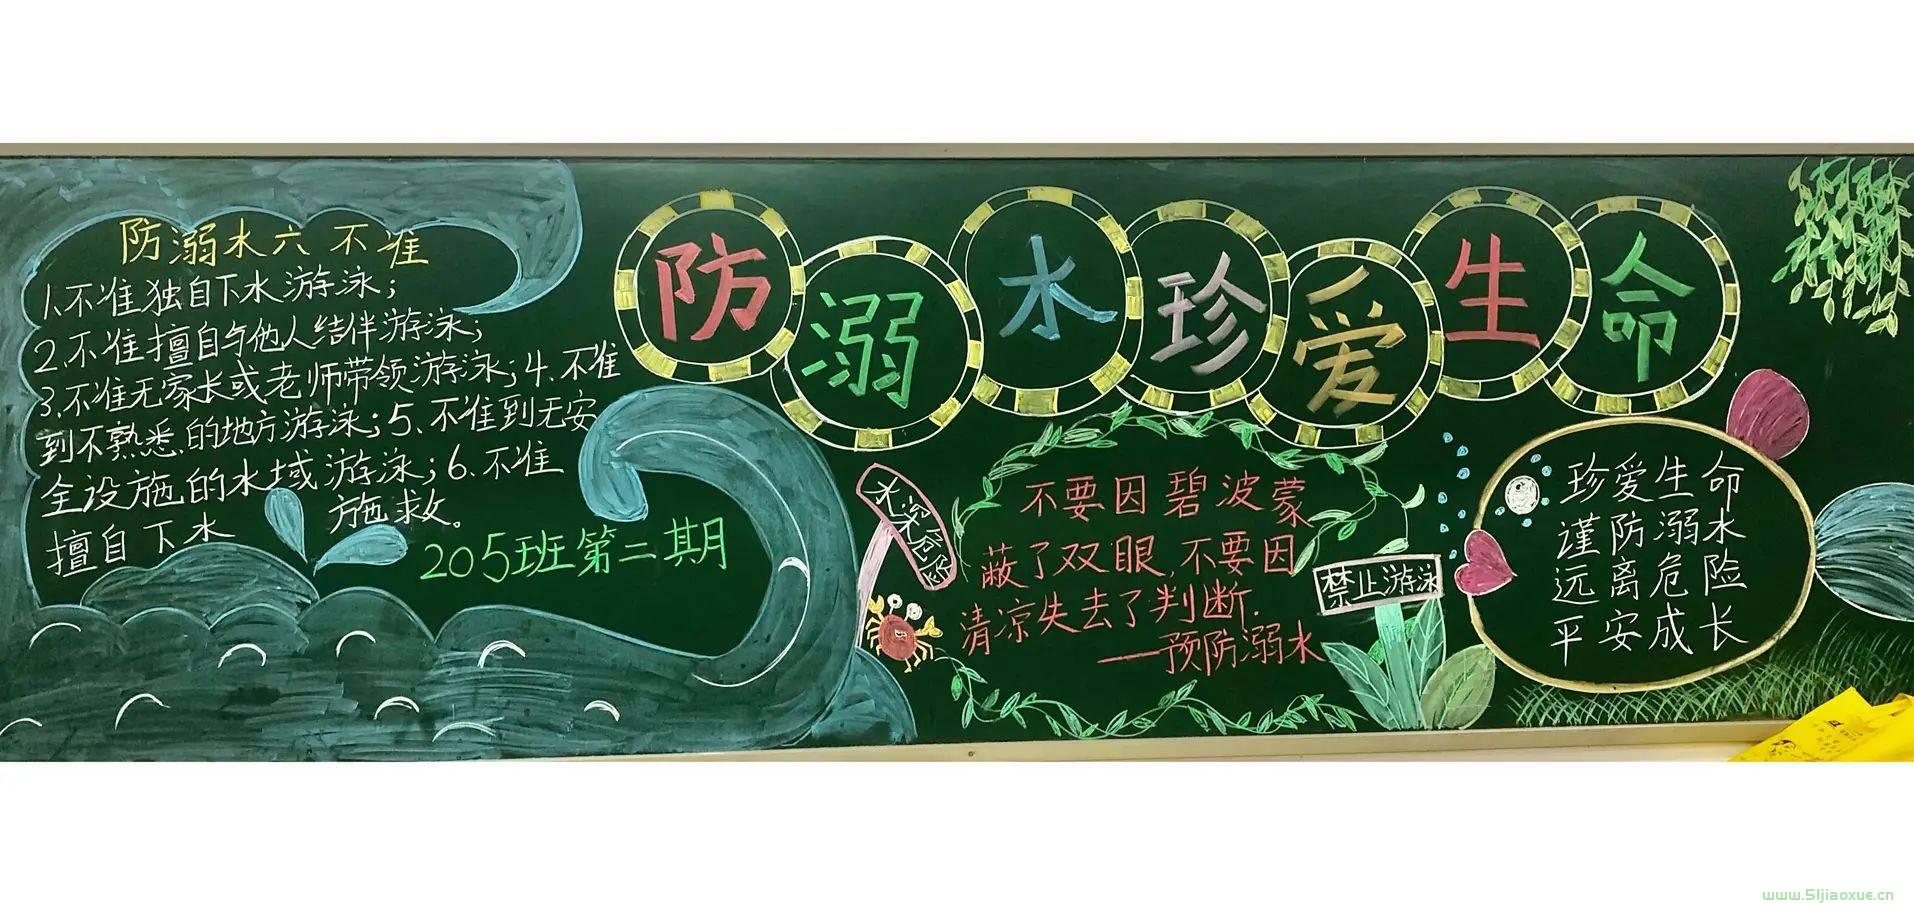 防溺水六不准
1.不准独自下水游泳;
2.不准擅自与他人结伴游泳;
3.不准无家长或老师带领游泳;4.不准
到不熟悉的地方游泳;5.不准到无安
全设施的水域游泳;6.不准
擅自下水
施救。
205班第二期
防溺水珍爱生命
水深危险
不要因碧波蒙
蔽了双眼,不要因
清凉失去了判断.
——预防溺水
禁止游泳
珍爱生命
谨防溺水
远离危险
平安成长
www.51jiaoxue.cn